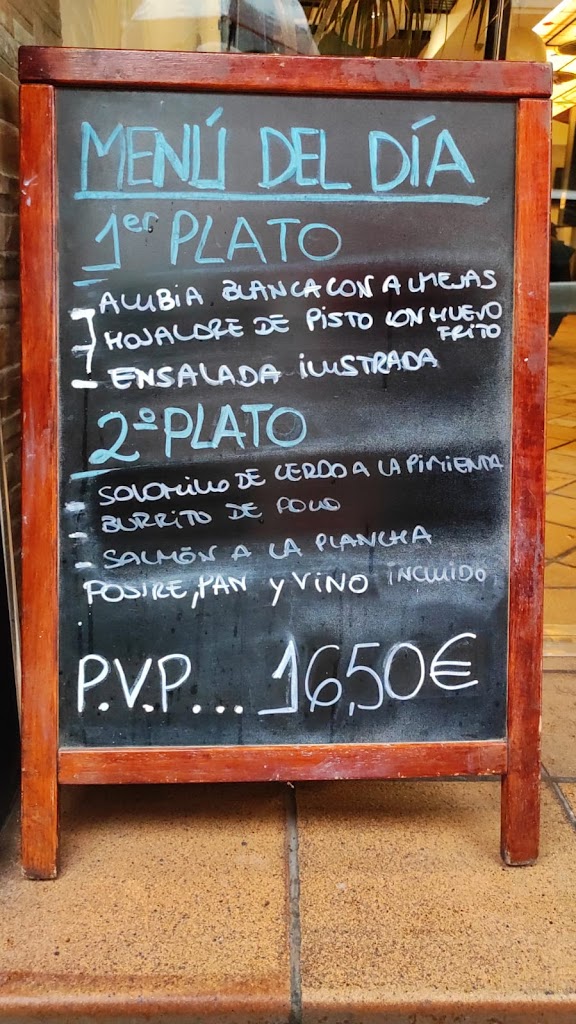 MENÚ DEL DÍA
1er PLATO
- ALUBIA BLANCA CON ALMEJAS
- HOJALDRE DE PISTO CON HUEVO
FRITO
- ENSALADA ILUSTRADA
2º PLATO
- SOLOMILLO DE CERDO A LA PIMIENTA
- BURRITO DE POLLO
- SALMÓN A LA PLANCHA
POSTRE, PAN Y VINO INCLUIDO
P.V.P... 16,50€